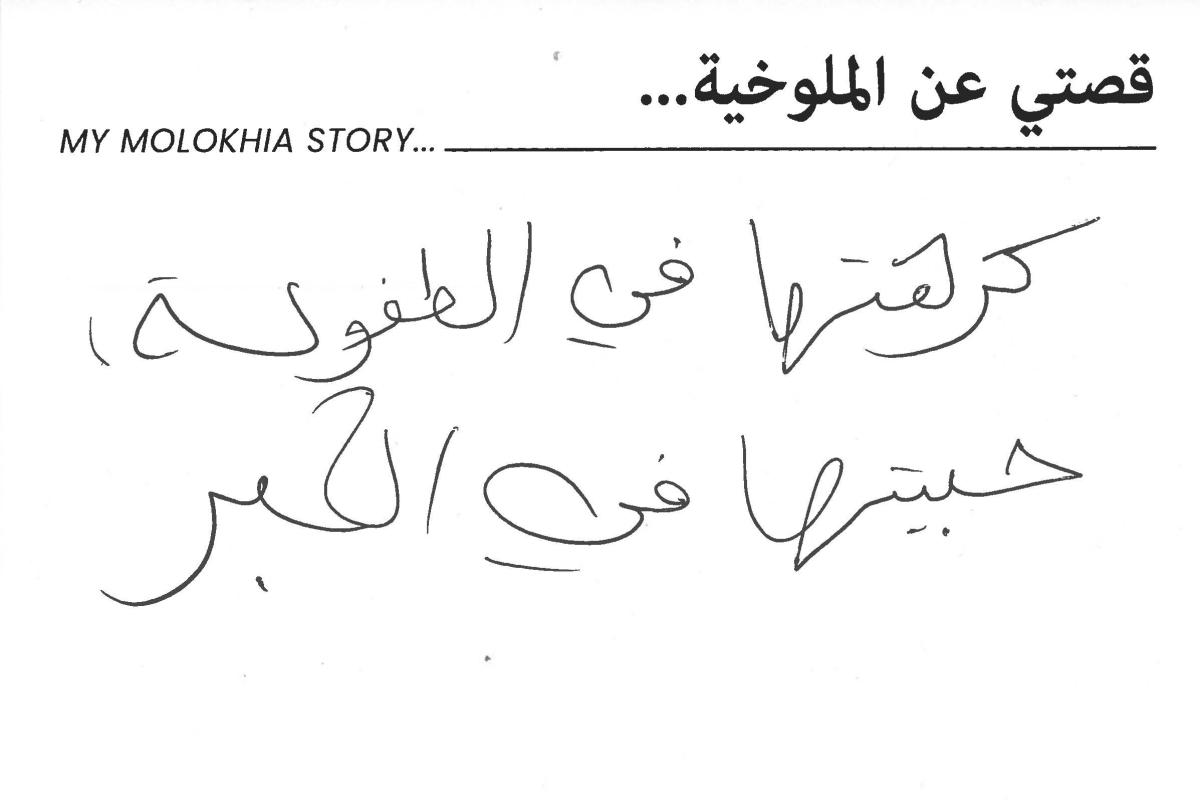 قصتي عن الملوخية...
MY MOLOKHIA STORY...
كرهتها في الطفولة،
حبيتها في الكبر